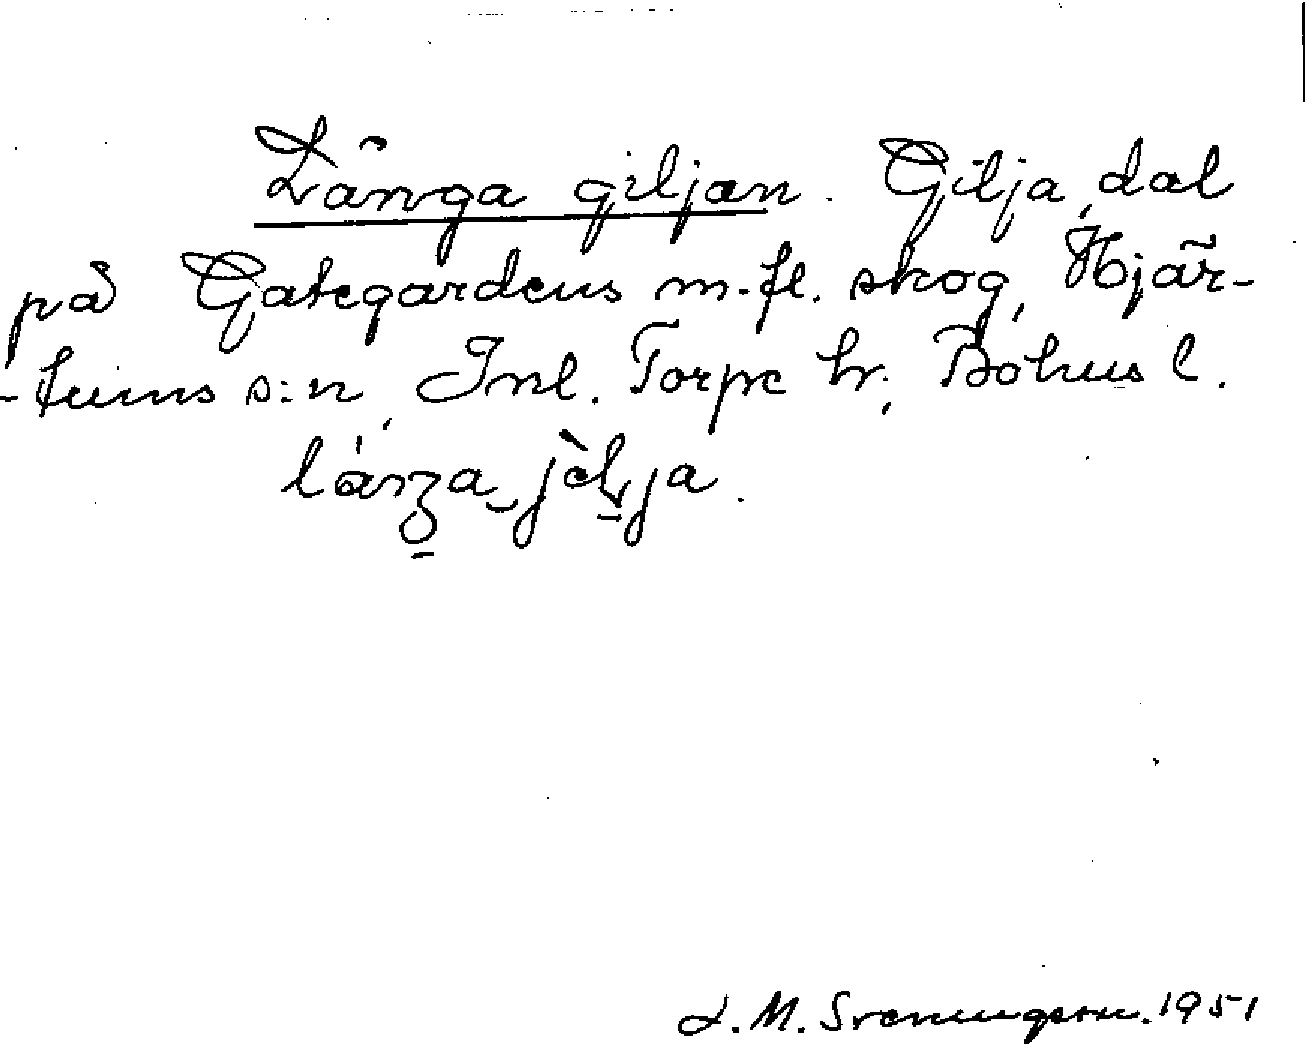 Långa giljan. Gilja, dal
på Gategårdens m.fl. skog, Hjär-
-tums s:n, Inl. Torpe hr., Bohus l.
L. M. Svenungsson. 1951